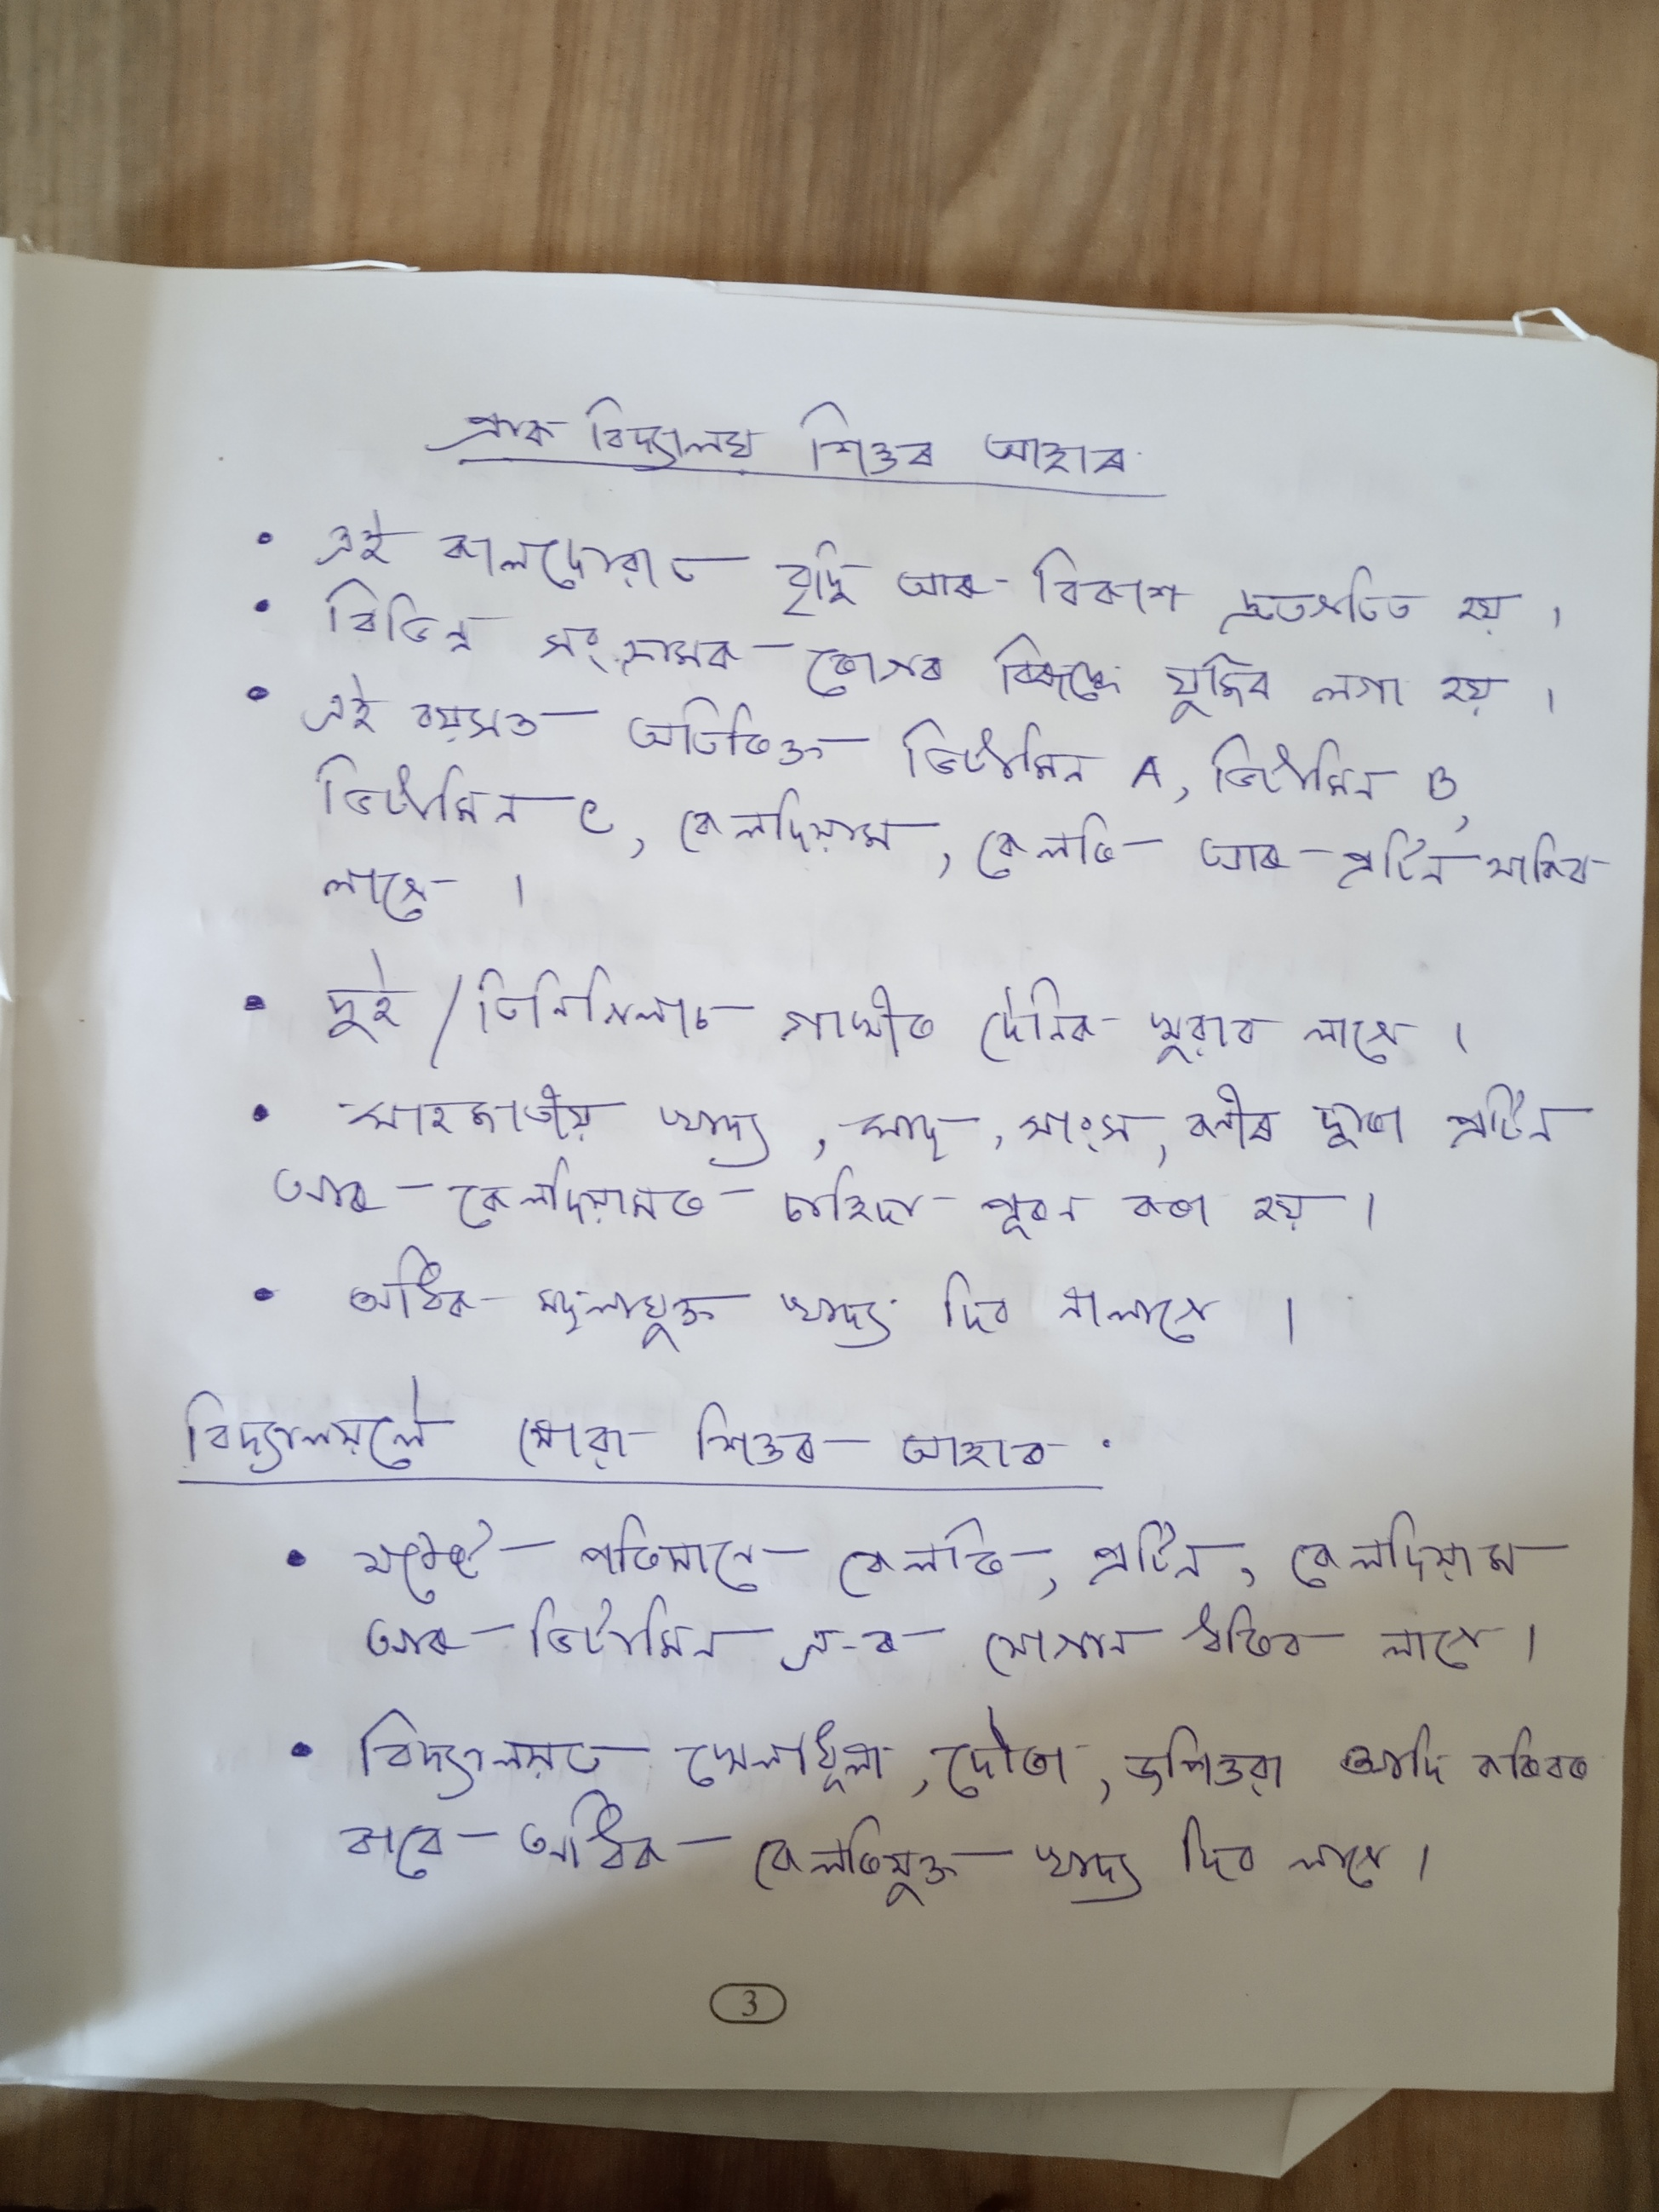 প্ৰাক বিদ্যালয় শিশুৰ আহাৰ
• এই কালছোৱাত বৃদ্ধি আৰু বিকাশ দ্ৰুতগতিত হয় ।
• বিভিন্ন সংক্ৰামক ৰোগৰ বিৰূদ্ধে যুজিব লগা হয় ।
• এই বয়সত অতিৰিক্ত ভিটামিন A, ভিটামিন B,
ভিটামিন C, কেলচিয়াম, কেলৰি আৰু প্ৰটিন থাকিব
লাগে ।
• দুই / তিনিগিলাচ গাখীৰ দৈনিক খুৱাব লাগে ।
• মাহজাতীয় খাদ্য, মাছ, মাংস, কণীৰ দ্বাৰা প্ৰটিন
আৰু কেলচিয়ামৰ চাহিদা পূৰন কৰা হয় ।
• অধিক মছলাযুক্ত খাদ্য দিব নালাগে ।
বিদ্যালয়লৈ যোৱা শিশুৰ আহাৰ
• যথেষ্ট পৰিমানে কেলৰি, প্ৰটিন, কেলচিয়াম
আৰু ভিটামিন এ-ৰ যোগান ধৰিব লাগে ।
• বিদ্যালয়ত খেলাধূলা, দৌৰা, আদি কৰিবৰ
বাবে অধিক কেলৰিযুক্ত খাদ্য দিব লাগে ।
3